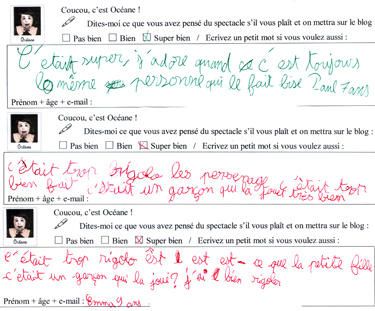 Coucou, c'est Océane !
Dites-moi ce que vous avez pensé du spectacle s'il vous plaît et on mettra sur le blog :
Pas bien Bien Super bien / Ecrivez un petit mot si vous voulez aussi :
Océane
C'était super j'adore quand c'est toujours
le même personne qui le fait bise Paul 7 ans
Prénom + âge + e-mail :
Coucou, c'est Océane !
Dites-moi ce que vous avez pensé du spectacle s'il vous plaît et on mettra sur le blog :
Pas bien Bien Super bien / Ecrivez un petit mot si vous voulez aussi :
Océane
c'était trop rigolo les personage était trop
bien fait c'était un garçon qui la joué très bien
Prénom + âge + e-mail :
Coucou, c'est Océane !
Dites-moi ce que vous avez pensé du spectacle s'il vous plaît et on mettra sur le blog :
Pas bien Bien Super bien / Ecrivez un petit mot si vous voulez aussi :
Océane
c'était trop rigolo est est - ce que la petite fille
c'était un garçon qui la joué? j'ai bien rigoler
Prénom + âge + e-mail : Emma 9 ans